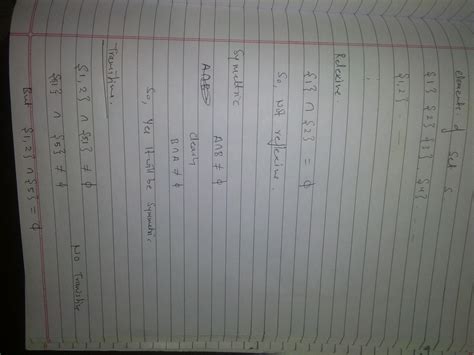 elements of Set S
{1} {2} {3} . {4} ...
{1,2} - ...
Relexive
{1} ∩ {2} = ϕ
So, Not reflexive.
Symettric
A∩B ≠ ϕ
Clearly
B∩A ≠ ϕ
So, Yes It will be Symmetric.
Transitive
{1,2} ∩ {1} ≠ ϕ
{1} ∩ {5} ≠ ϕ
But {1,2} ∩ {5} = ϕ
No Transitive